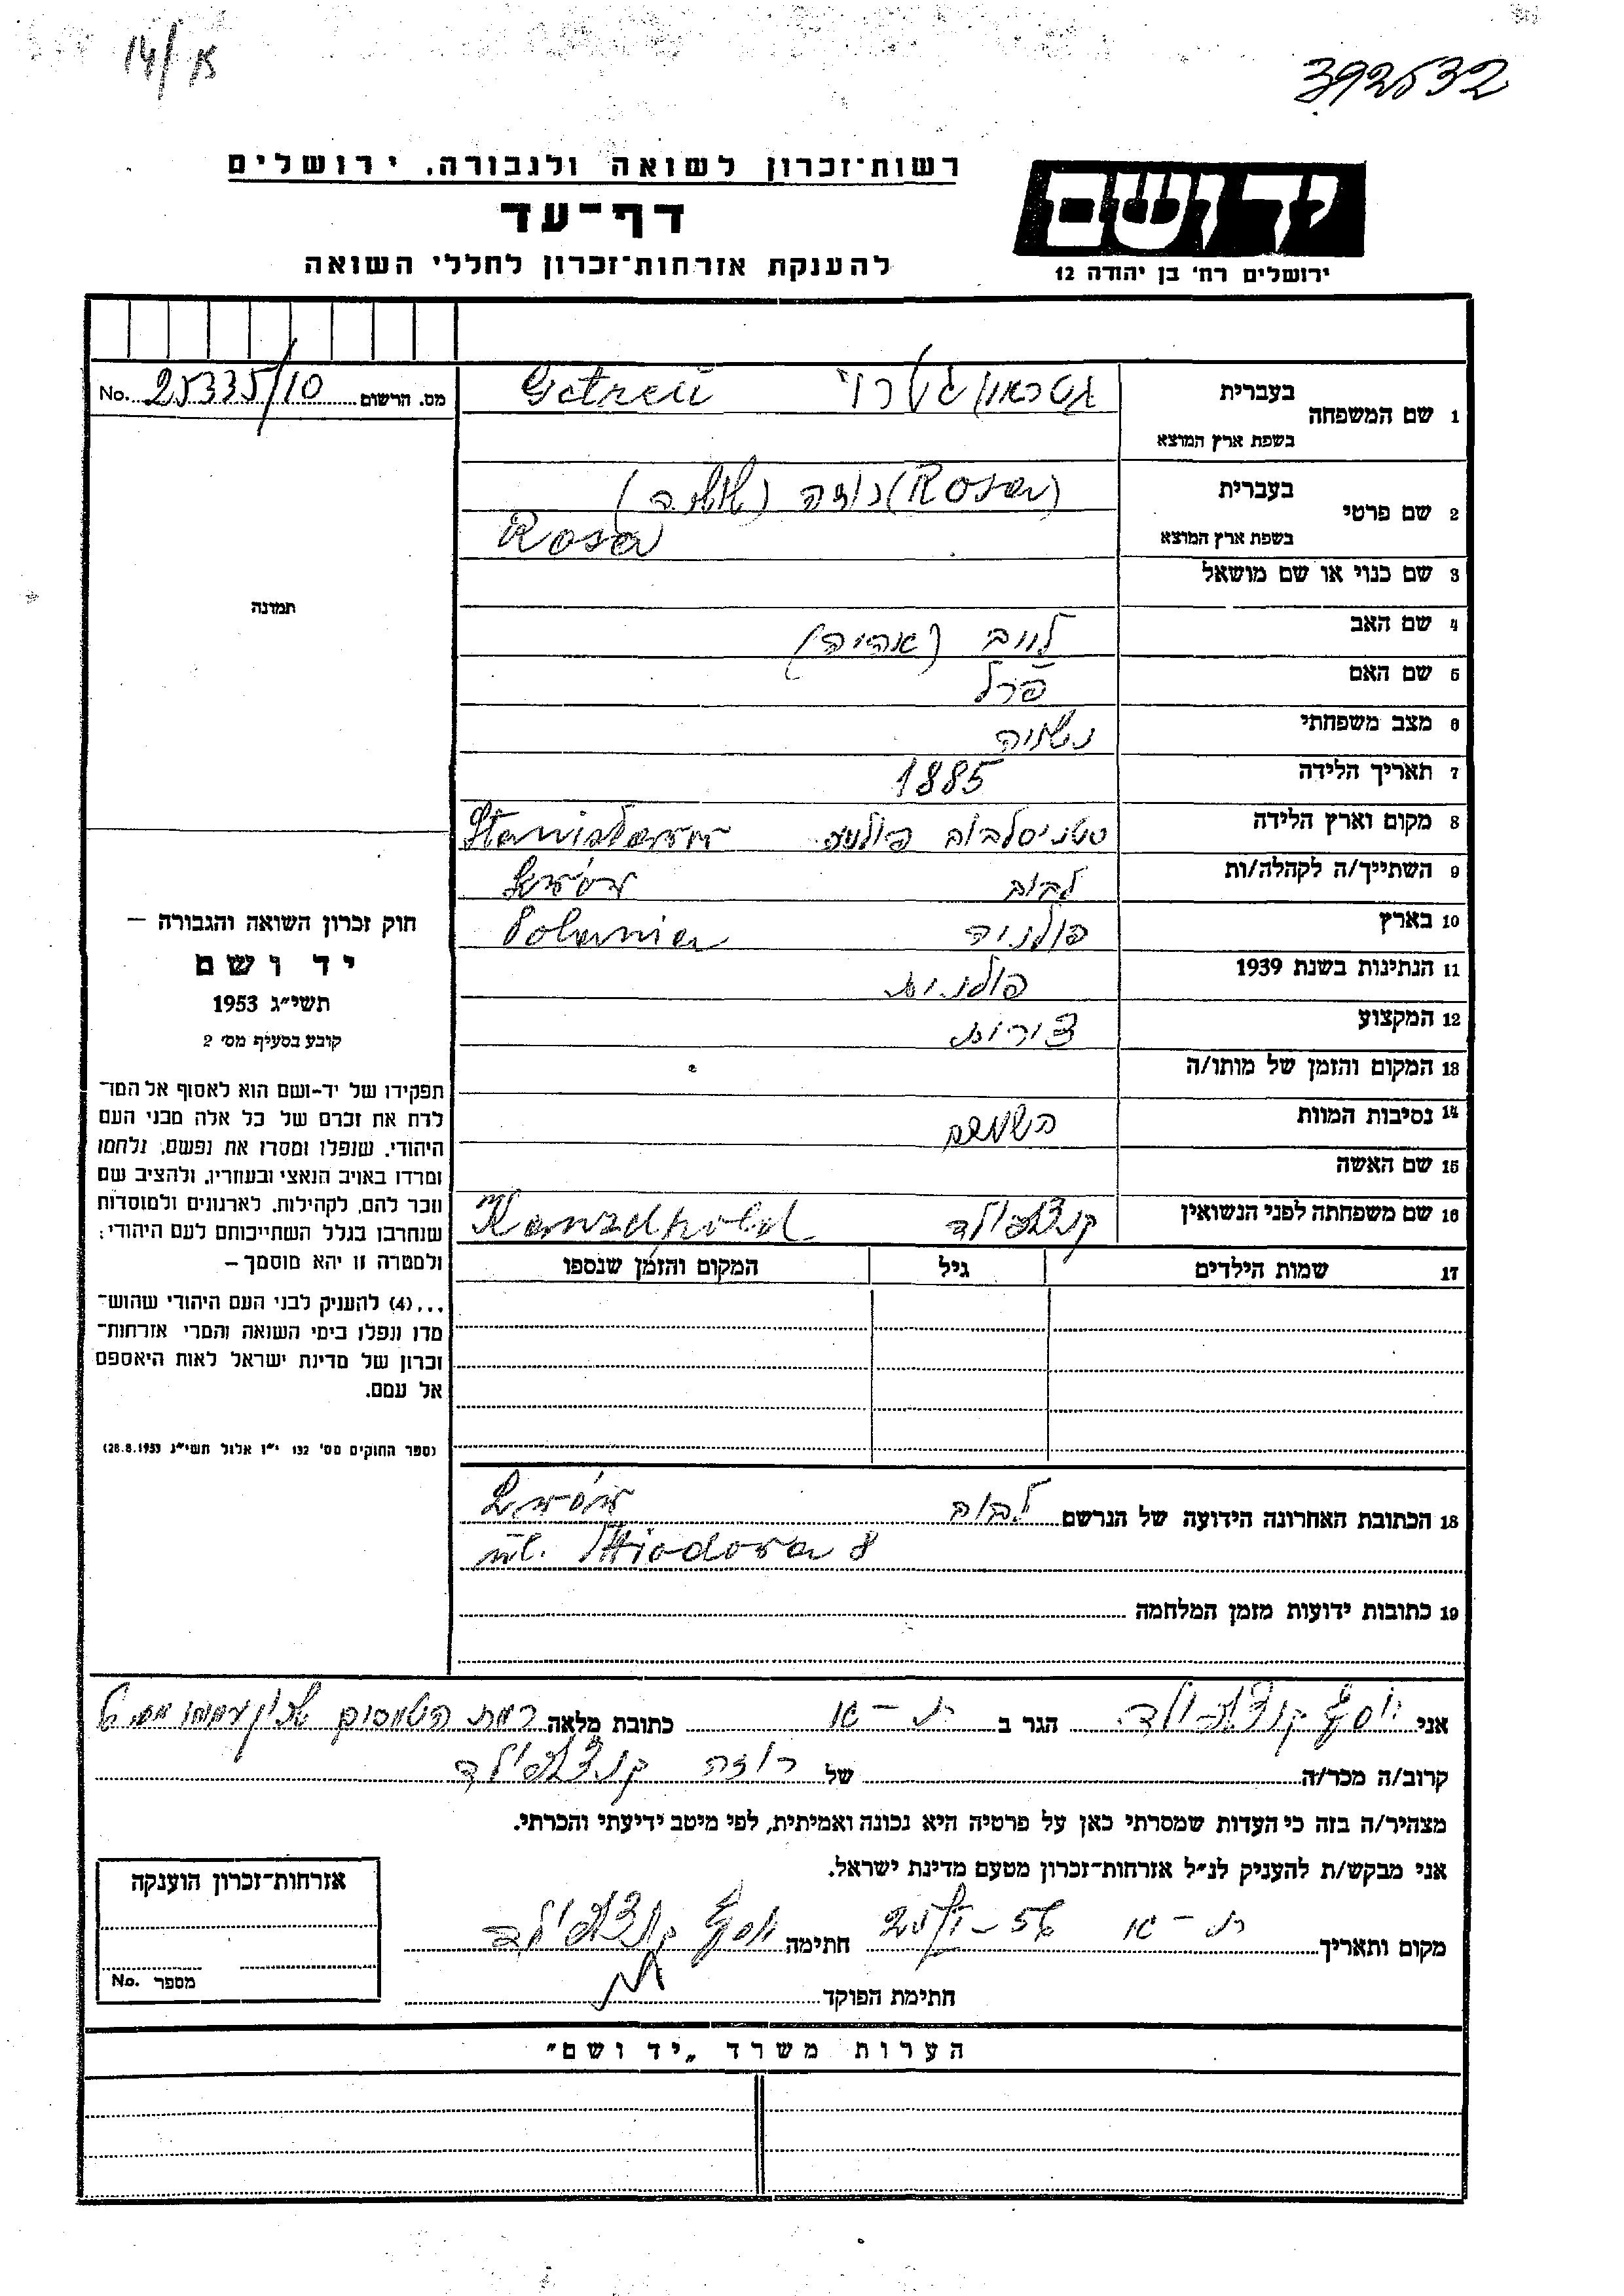 14/א
392532
רשות־זכרון לשואה ולגבורה, ירושלים
דף־עד
להענקת אזרחות־זכרון לחללי השואה
יד ושם
ירושלים רח' בן יהודה 12
No. 25335/10 מס. הרשום
1 שם המשפחה בעברית גטראו/גטרוי Getreü
בשפת ארץ המוצא
2 שם פרטי בעברית (Rosa) רוזה
בשפת ארץ המוצא Rosa
3 שם כנוי או שם מושאל
4 שם האב לויב
5 שם האם פרל
6 מצב משפחתי נשואה
7 תאריך הלידה 1885
8 מקום וארץ הלידה סטניסלבוב Stanisławow
9 השתייך/ה לקהלה/ות לבוב Lwów
10 בארץ פולניה Polania
11 הנתינות בשנת 1939 פולנית
12 המקצוע
13 המקום והזמן של מותו/ה
14 נסיבות המוות
15 שם האשה
16 שם משפחתה לפני הנשואין קנצפולד Kanzdpold
17 שמות הילדים גיל המקום והזמן שנספו
18 הכתובת האחרונה הידועה של הנרשם לבוב Lwów
ul. Thiodora 8
19 כתובות ידועות מזמן המלחמה
תמונה
חוק זכרון השואה והגבורה –
יד ושם
תשי״ג 1953
קובע בסעיף מס׳ 2
תפקידו של יד-ושם הוא לאסוף אל המו־
לדת את זכרם של כל אלה מבני העם
היהודי, שנפלו ומסרו את נפשם, נלחמו
ומרדו באויב הנאצי ובעוזריו, ולהציב שם
וזכר להם, לקהילות, לארגונים ולמוסדות
שנחרבו בגלל השתייכותם לעם היהודי;
ולמטרה זו יהא מוסמך –
...(4) להעניק לבני העם היהודי שהוש־
מדו ונפלו בימי השואה והמרי אזרחות־
זכרון של מדינת ישראל לאות היאספם
אל עמם.
(ספר החוקים מס׳ 132 י״ז אלול תשי״ג 28.8.1953)
אני יוסף קנצפולד הגר ב ת–א כתובת מלאה רמת
קרוב/ה מכר/ה של רוזה קנצפולד
מצהיר/ה בזה כי העדות שמסרתי כאן על פרטיה היא נכונה ואמיתית, לפי מיטב ידיעתי והכרתי.
אני מבקש/ת להעניק לנ״ל אזרחות־זכרון מטעם מדינת ישראל.
מקום ותאריך ת–א חתימה יוסף קנצפולד
חתימת הפוקד
אזרחות־זכרון הוענקה
No. מספר
הערות משרד „יד ושם״